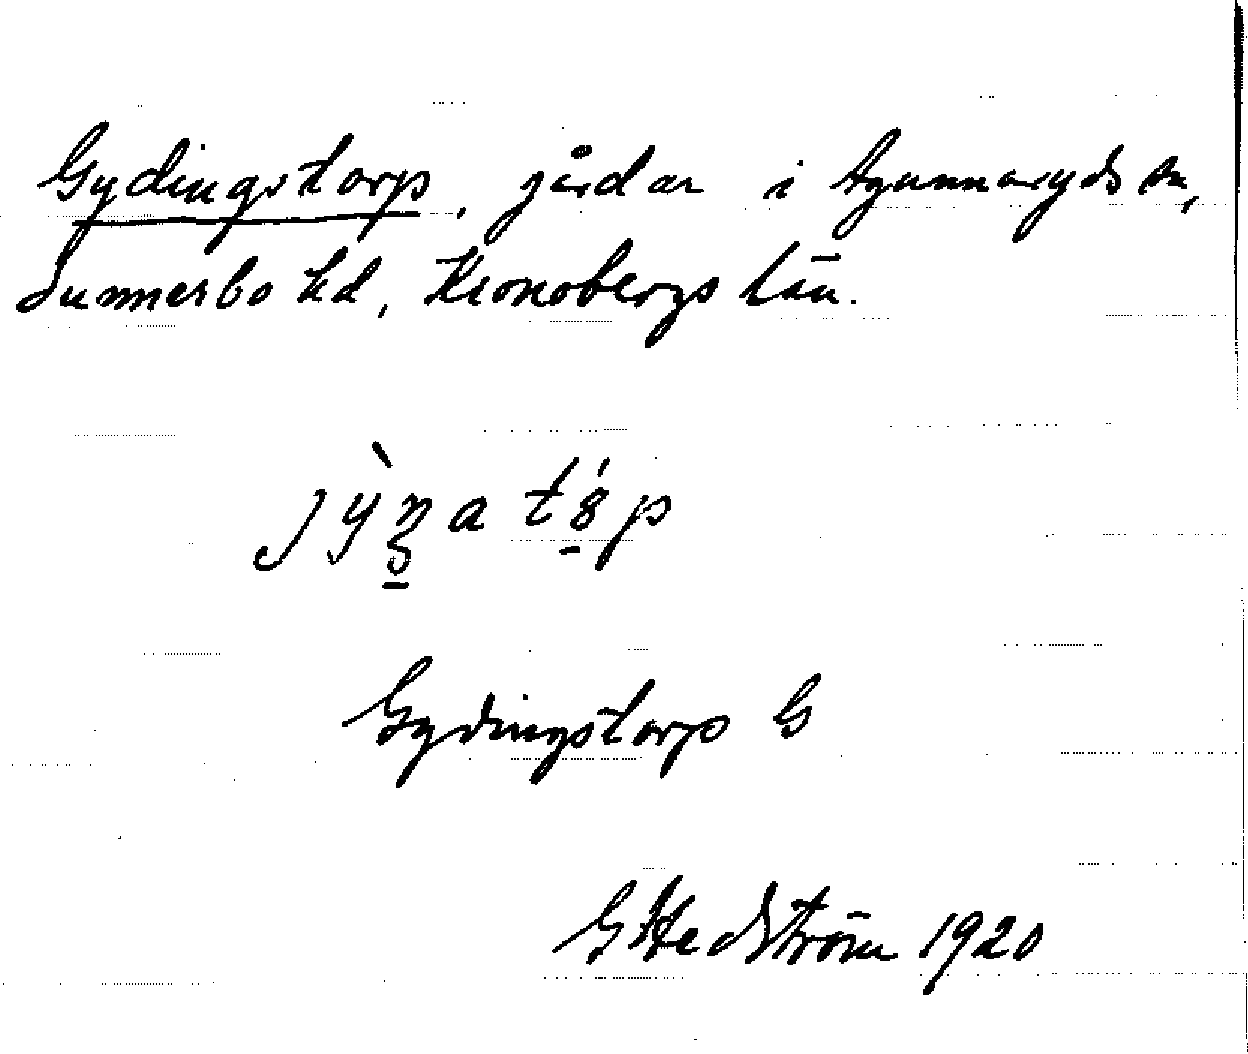 Gydingstorp, gårdar i Agunnaryds sn,
Sunnerbo hd, Kronobergs län.
Gydingstorp G
G Hedström 1920